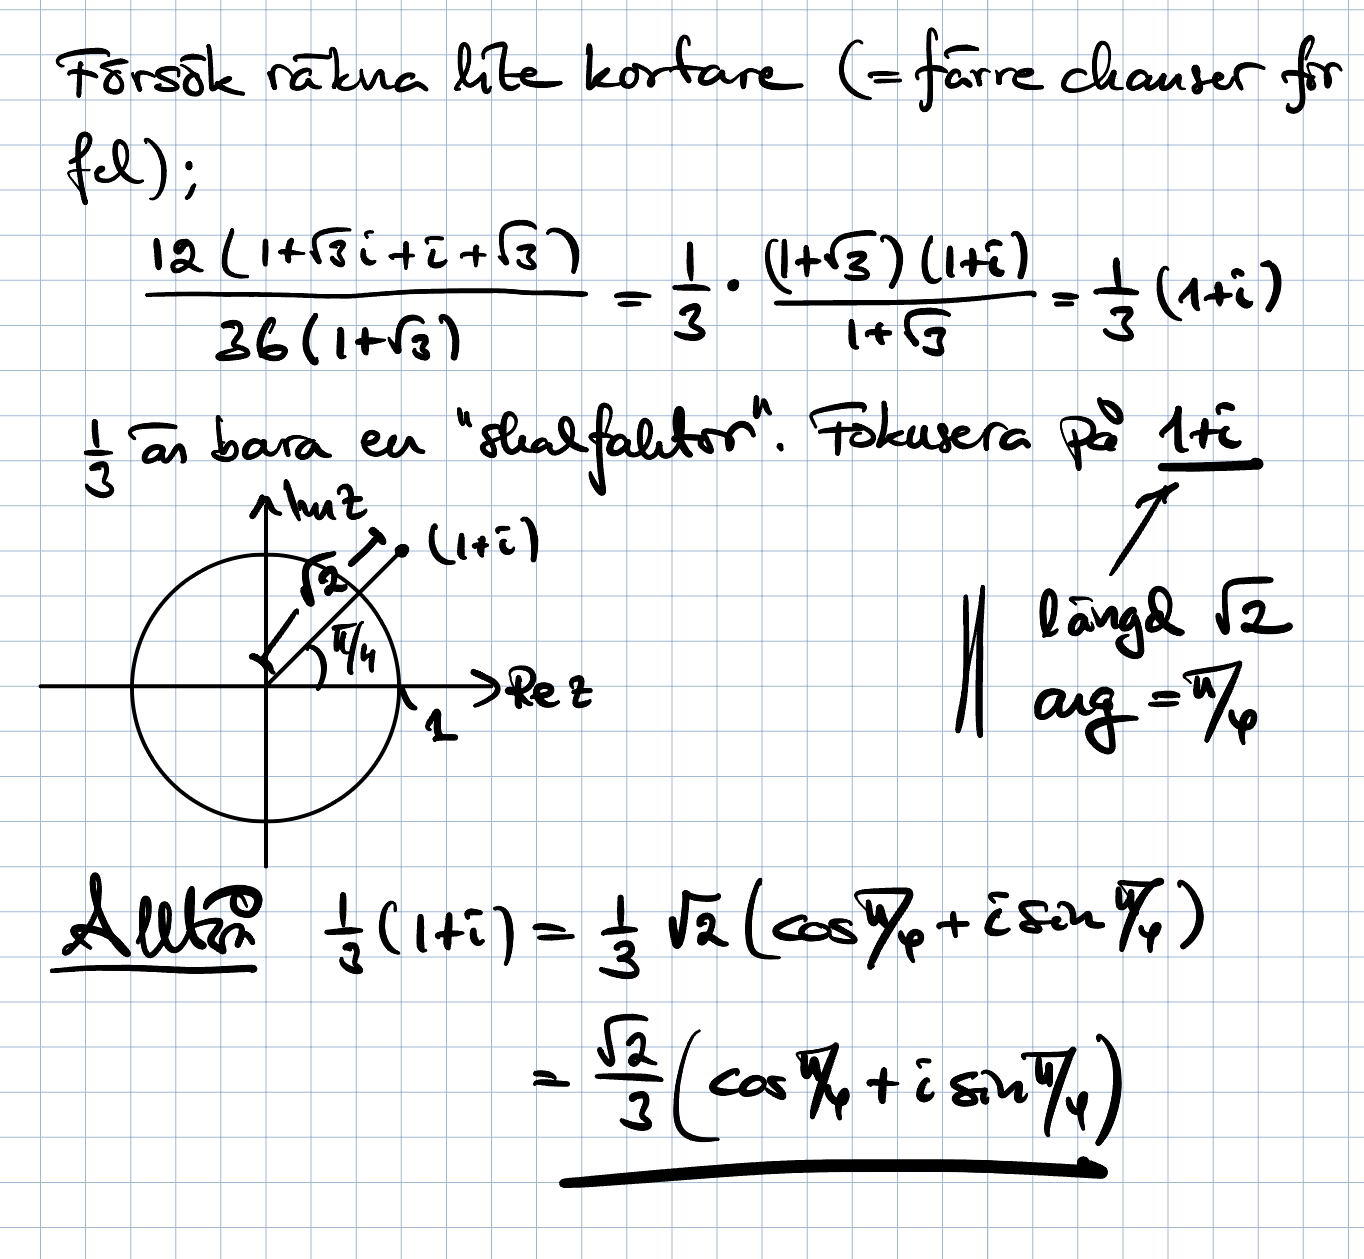 Försök räkna lite kortare (= färre chanser för
fel);
12(1+√3i+i+√3) / 36(1+√3) = 1/3 · (1+√3)(1+i) / 1+√3 = 1/3 (1+i)
1/3 är bara en "skalfaktor". Fokusera på 1+i
Im z
(1+i)
√2
π/4
Re z
1
längd √2
arg = π/4
Alltså 1/3 (1+i) = 1/3 √2 (cos π/4 + i sin π/4)
= √2/3 (cos π/4 + i sin π/4)